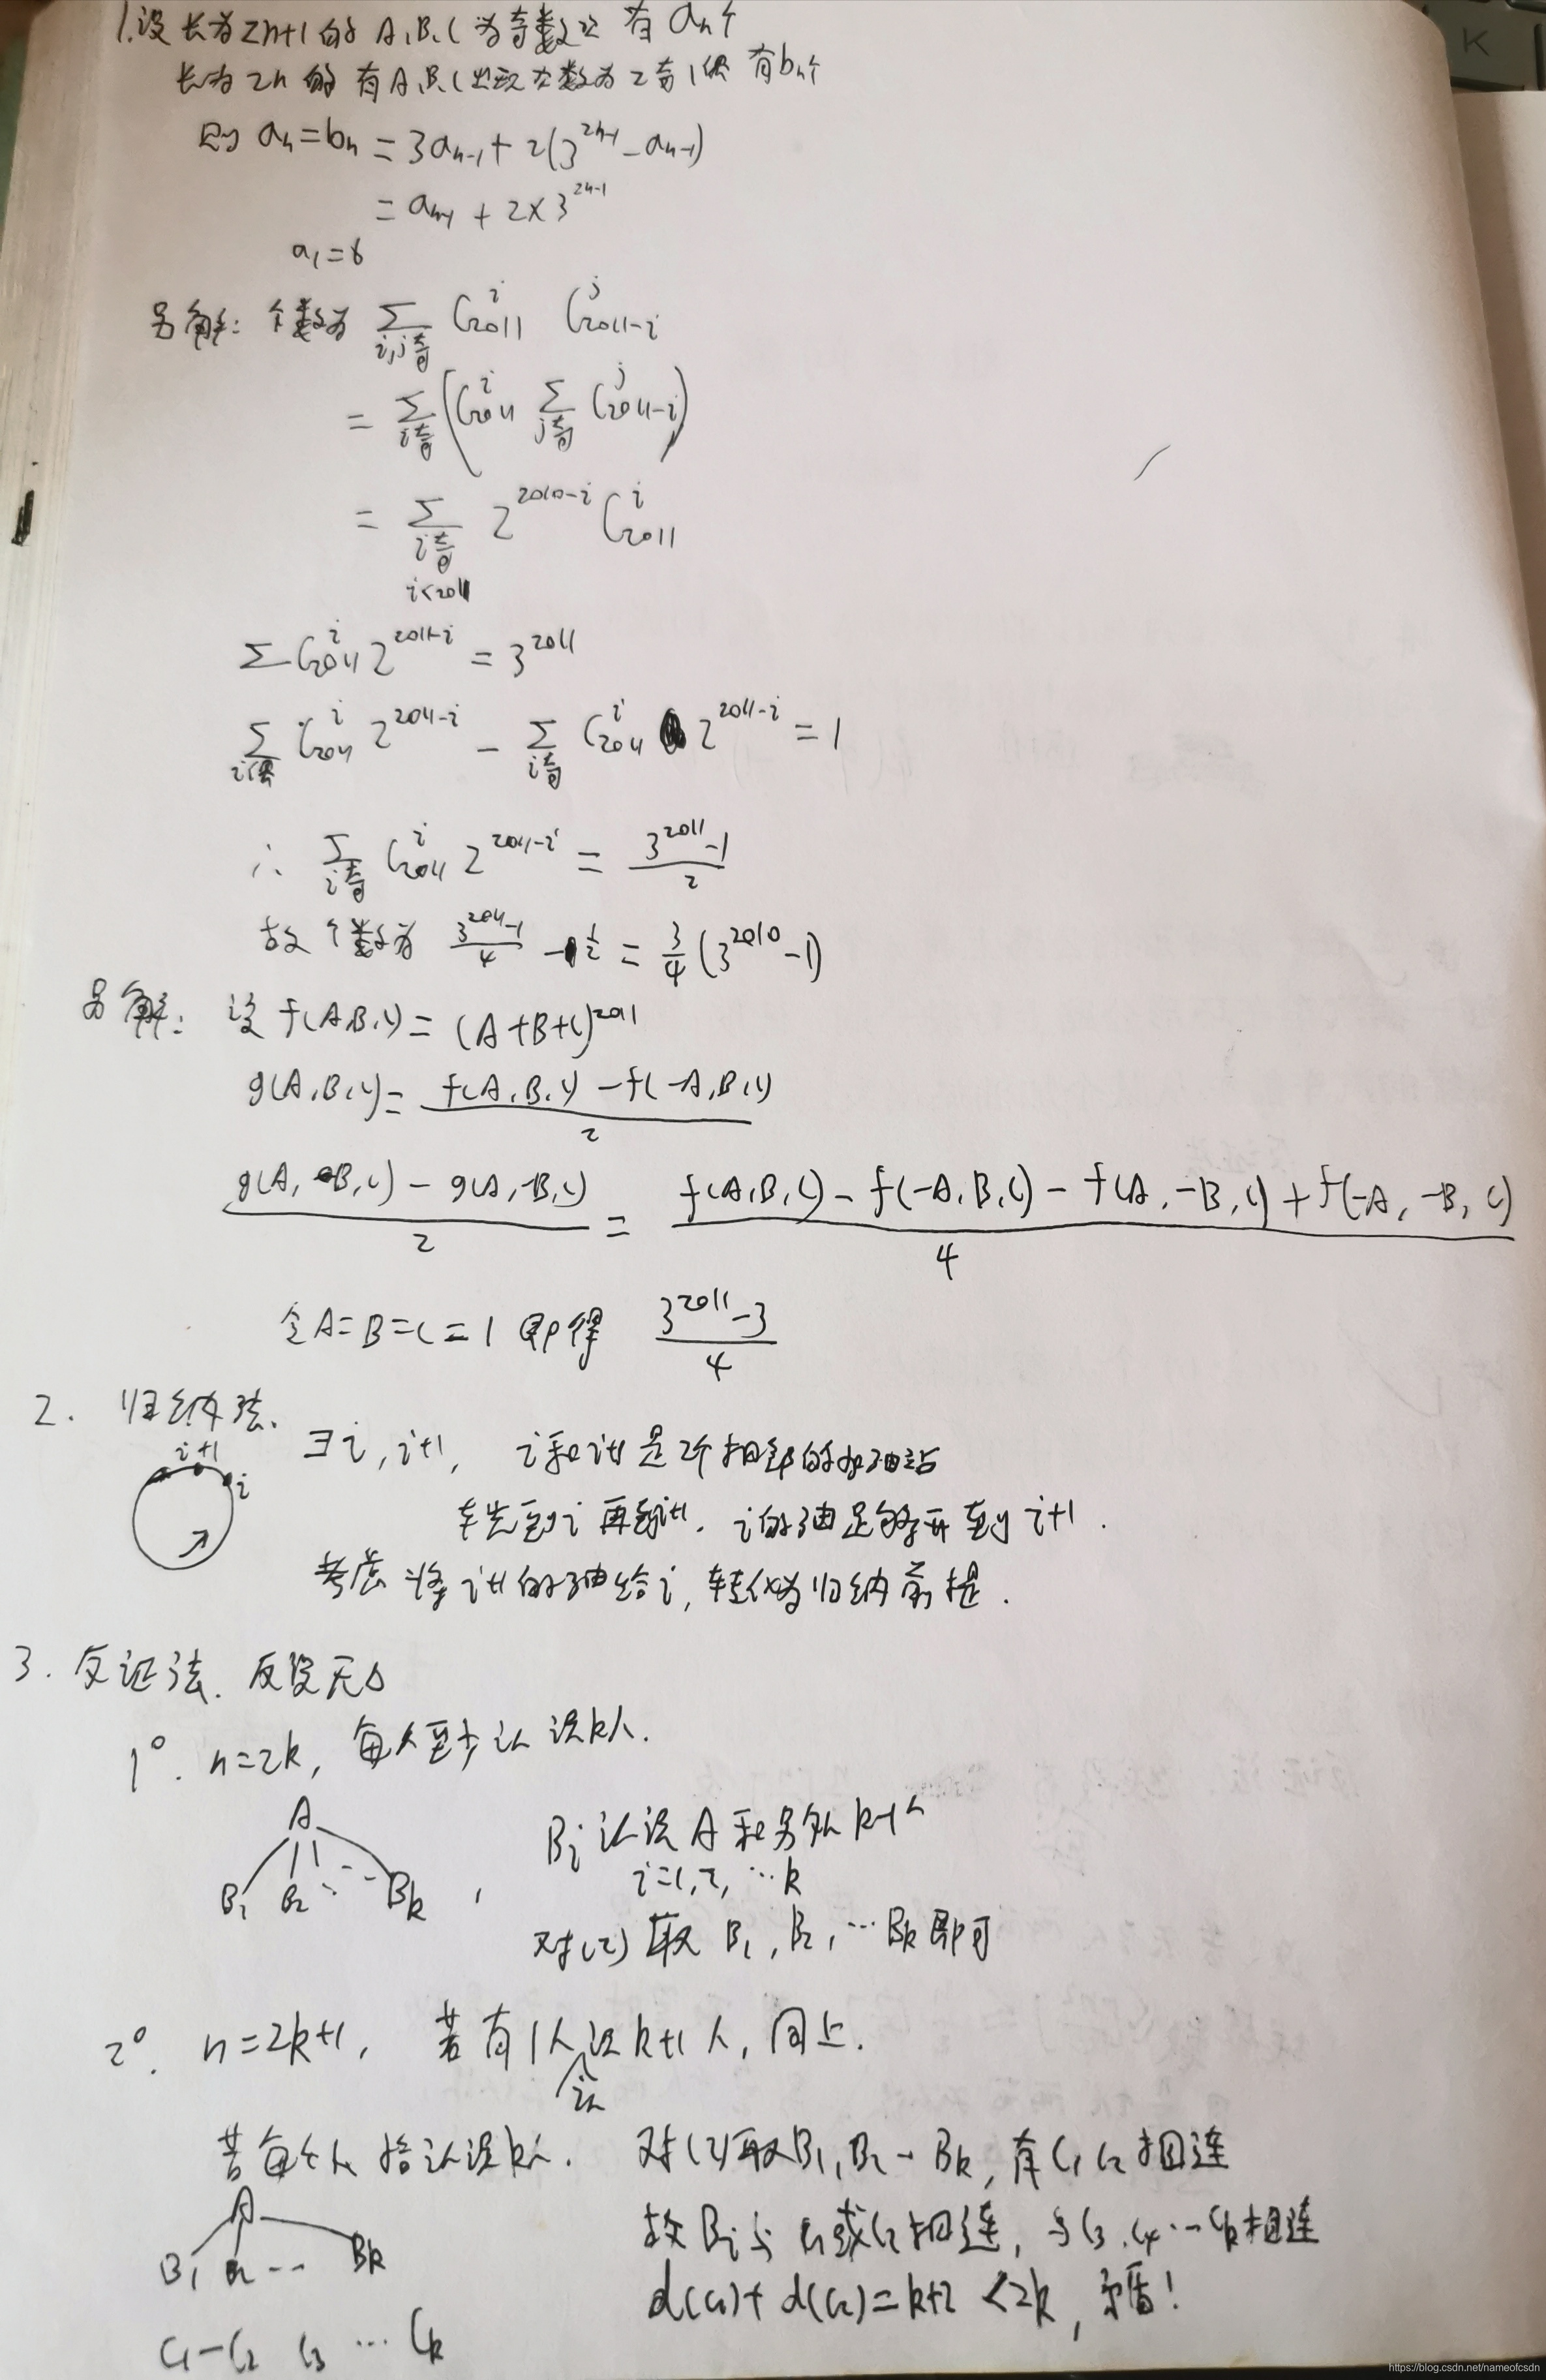 1.设长为2n+1的A,B,C为奇数次有aₙ个
长为2n的有A,B,C出现次数为2奇1偶 有bₙ个
则 aₙ=bₙ=3aₙ₋₁+2(3²ⁿ⁻¹-aₙ₋₁)
=aₙ₋₁+2×3²ⁿ⁻¹
a₁=6
另解: 个数为 ∑_{i,j奇} C_{2011}^{i} C_{2011-i}^{j}
= ∑_{i奇} (C_{2011}^{i} ∑_{j奇} C_{2011-i}^{j})
= ∑_{i奇 i<2011} 2^{2010-i} C_{2011}^{i}
∑ C_{2011}^{i} 2^{2011-i} = 3^{2011}
∑_{i偶} C_{2011}^{i} 2^{2011-i} - ∑_{i奇} C_{2011}^{i} 2^{2011-i} = 1
∴ ∑_{i奇} C_{2011}^{i} 2^{2011-i} = (3^{2011}-1)/2
故个数为 (3^{2011}-1)/4 - 1/2 = 3/4 (3^{2010}-1)
另解: 设 f(A,B,C)=(A+B+C)^{2011}
g(A,B,C)= (f(A,B,C)-f(-A,B,C))/2
(g(A,B,C)-g(A,-B,C))/2 = (f(A,B,C)-f(-A,B,C)-f(A,-B,C)+f(-A,-B,C))/4
令A=B=C=1 即得 (3^{2011}-3)/4
2. 归纳法.
i+1
i
∃i,i+1, i和i+1是2个相邻的加油站
车先到i再到i+1. i的油足够开到i+1.
考虑将i+1的油给i,转化为归纳前提.
3. 反证法. 反设无△
1°. n=2k, 每人至少认识k人.
A
B₁ B₂ ⋯ Bₖ ,
Bᵢ认识A和另外k-1人
i=1,2,⋯k
对(2)取B₁,B₂,⋯Bₖ即可
2°. n=2k+1, 若有1人认识k+1人,同上.
若每个人恰认识k人.
A
B₁ B₂ ⋯ Bₖ
C₁-C₂ C₃ ⋯ Cₖ
对(2)取B₁,B₂⋯Bₖ,有C₁C₂相连
故Bᵢ与C₁或C₂相连,与C₃,C₄⋯Cₖ相连
d(C₁)+d(C₂)=k+2<2k,矛盾!
K
https://blog.csdn.net/nameofcsdn